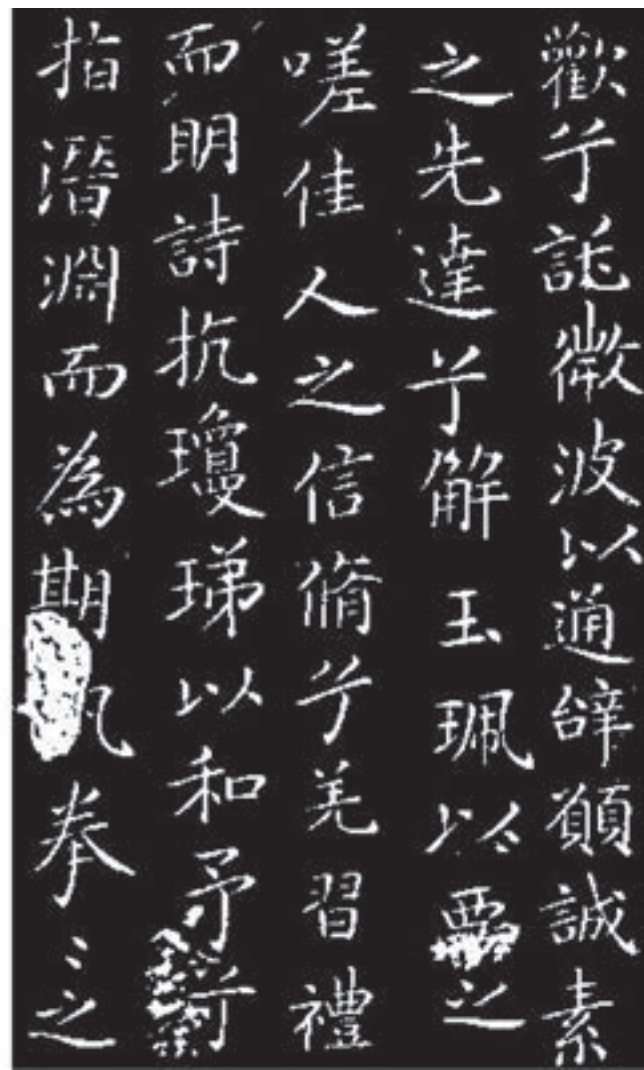 歡兮託微波以通辭願誠素
之先達兮解玉珮以要之
嗟佳人之信脩兮羌習禮
而明詩抗瓊珶以和予兮
指潛淵而為期拳〻之